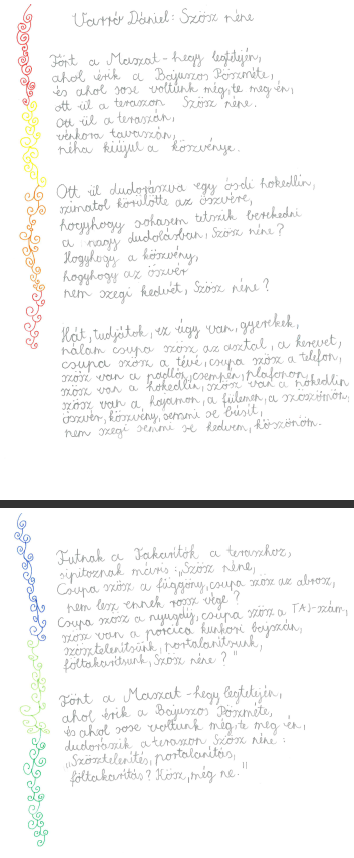 Varró Dániel: Szösz néne
Fönt a Maszat-hegy legtetején,
ahol érik a Bajuszos Pöszméte,
és ahol sose voltunk még, te meg én,
ott ül a teraszon Szösz néne.
Ott ül a teraszán,
vénkora tavaszán,
néha kiújul a köszvénye.
Ott ül dudorászva egy ósdi hokedlin,
szimatol körülötte az öszvére,
hogyhogy sohasem tetszik berekedni
a nagy dudolásban, Szösz néne?
Hogyhogy a köszvény,
hogyhogy az öszvér
nem szegi kedvét, Szösz néne?
Hát, tudjátok, ez úgy van, gyerekek,
nálam csupa szösz az asztal, a kerevet,
csupa szösz a tévé, csupa szösz a telefon,
szösz van a padlón, csempén, plafonon,
szösz van a hokedlin, szösz van a hokedlin
szösz van a hajamon, a fülemen, a szöszömön,
öszvér, köszvény, semmi se búsít,
nem szegi semmi se kedvem, köszönöm.
Futnak a Takarítók a teraszhoz,
sipítoznak máris: „Szösz néne,
Csupa szösz a függöny, csupa szösz az abrosz,
nem lesz ennek rossz vége?
Csupa szösz a nyugdíj, csupa szösz a TAJ-szám,
szösz van a porcica kunkori bajszán,
szösztelenítsünk, portalanítsunk,
föltakarítsunk, Szösz néne?"
Fönt a Maszat-hegy legtetején,
ahol érik a Bajuszos Pöszméte,
és ahol sose voltunk még, te meg én,
dudorászik a teraszon Szösz néne:
„Szösztelenítés, portalanítás,
föltakarítás? Kösz, még ne."